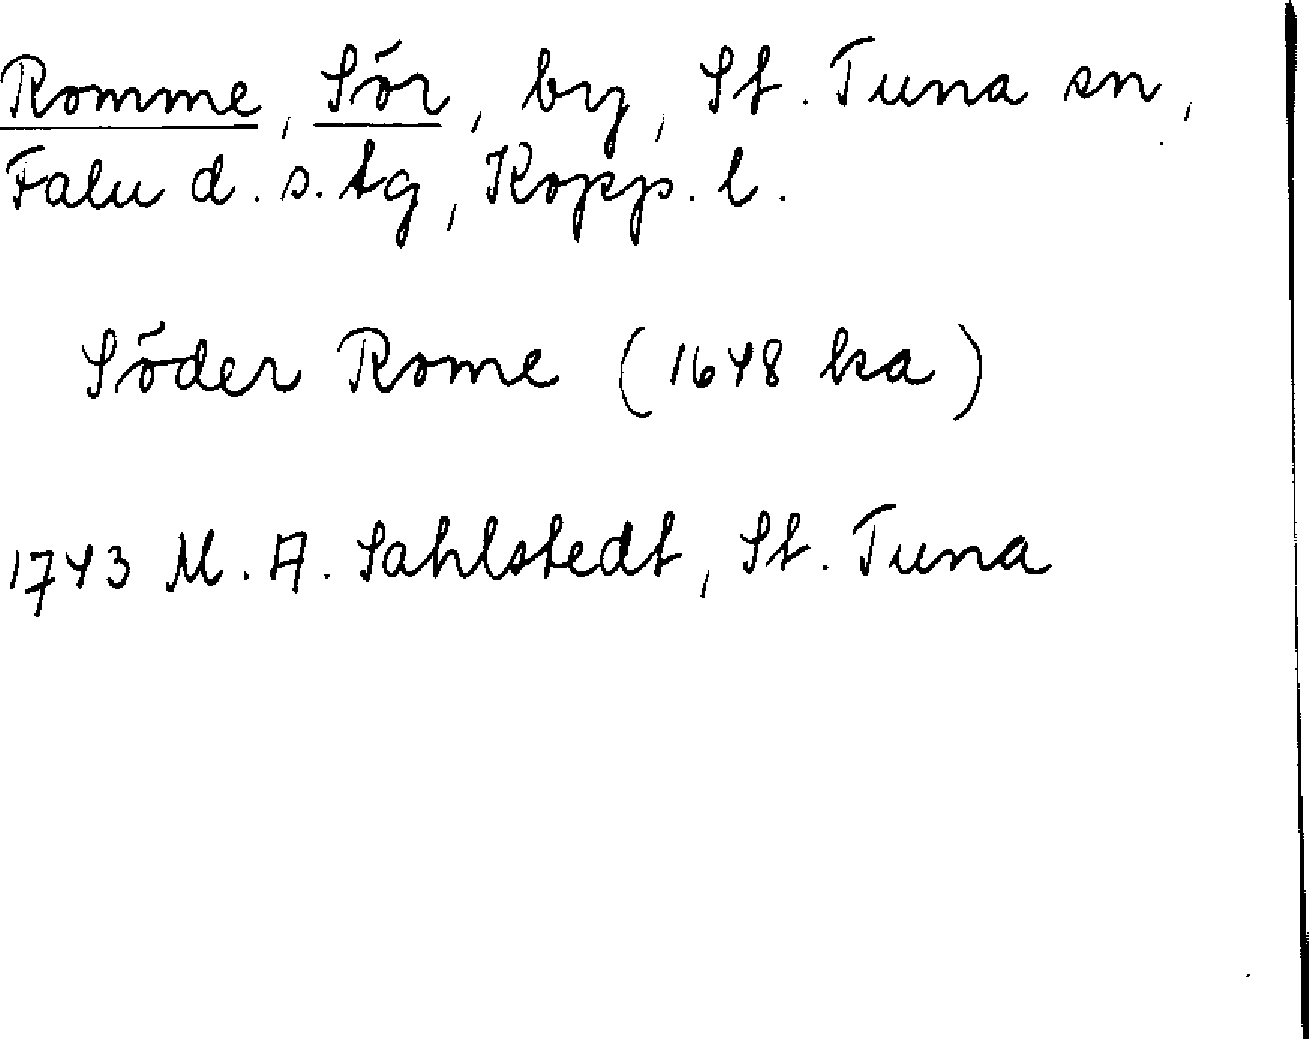 Romme, Sör, by, St. Tuna sn,
Falu d. s. tg, Kopp. l.
Söder Rome (1648 ka)
1743 M. A. Sahlstedt, St. Tuna